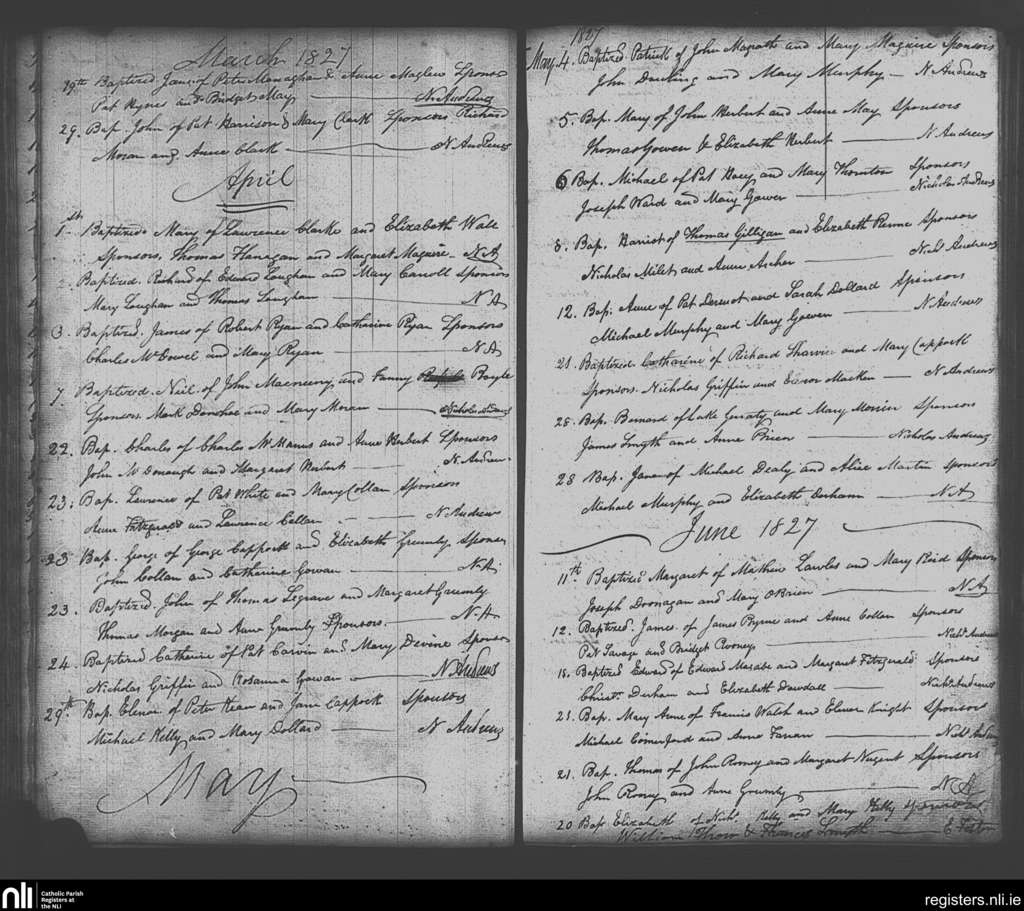 March 1827
29th Baptized Jane of Peter Monaghan & Anne Maglew Sponsors
Pat Hynes and Bridget May N. Andrews
29. Bap. John of Pat Harrison & Mary Clark Sponsors Richard
Moran and Anne Clark N Andrews
April
1st Baptized Mary of Lawrence Clarke and Elizabeth Wall
Sponsors, Thomas Flanagan and Margaret Maguire N A
2. Baptized. Richard of Edward Loughan and Mary Carroll Sponsors
Mary Loughan and Thomas Loughan N A
3. Baptized. James of Robert Ryan and Catharine Ryan Sponsors
Charles McDowel and Mary Ryan N A
7 Baptized. Neil of John and Fanny Boyle
Sponsors, Mark Donohoe and Mary Moran Nicholas Andrews
22. Bap. Charles of Charles McManus and Anne Herbert Sponsors
John McDonaugh and Margaret Herbert N. Andrews
23. Bap. Lawrence of Pat White and Mary Collan Sponsors
Anne Fitzgerald and Lawrence Collan N Andrew
23 Bap. George of George Cappock and Elizabeth Grumly Sponsors
John Collan and Catharine Gowan N. A
23. Baptized. John of Thomas Legrave and Margaret Grumly
Thomas Morgan and Anne Grumly Sponsors. N A
24. Baptized Catherine of Pat Carvin and Mary Devine Sponsors
Nicholas Griffin and Rosanna Gowan N Andrews
29th Bap. Elenor of Peter and Jane Cappock Sponsors
Michael Kelly and Mary Dollard N Andrews
May
1827
May 4. Baptized Patrick of John Magrath and Mary Maguire Sponsors
John Dowling and Mary Murphy N Andrews
5. Bap. Mary of John Herbert and Anne May Sponsors
Thomas Gowen & Elizabeth Herbert N. Andrews
6 Bap. Michael of Pat Hoey and Mary Thornton Sponsors
Joseph Ward and Mary Gower Nicholas Andrews
8. Bap. Harriot of Thomas Gilligan and Elizabeth Sponsors
Nicholas Milet and Anne Archer Nichs Andrews
12. Bap. Anne of Pat Dermot and Sarah Dollard Sponsors
Michael Murphy and Mary Gowen N. Andrews
21 Baptized Catharine of Richard and Mary Cappock
Sponsors. Nicholas Griffin and Elenor Macken N Andrews
25. Bap. Bernard of Luke Geraty and Mary Sponsors
James Smyth and Anne Nicholas Andrews
28 Bap. James of Michael Dealy and Alice Martin Sponsors
Michael Murphy and Elizabeth Durham N. A
June 1827
11th Baptized Margaret of Mathew Lawles and Mary Reid Sponsors
Joseph Doonagan and Mary OBrien N. A
12. Baptized. James of James Pryme and Anne Collan Sponsors
Pat Savage and Bridget Rooney Nichs Andrews
18. Baptized Edward of Edward and Margaret Fitzgerald Sponsors
Christr Durham and Elizabeth Dowdall Nichs Andrews
21. Bap. Mary Anne of Francis Walsh and Elenor Knight Sponsors
Michael Comerford and Anne Farran Nichs Andrews
21. Bap. Thomas of John Rooney and Margaret Nugent Sponsors
John Rooney and Anne Grumly N A
20 Bap. Elizabeth of Nichs Kelly and Mary Kelly Sponsors
William & Francis Smyth
nli
Catholic Parish
Registers at
the NLI
registers.nli.ie